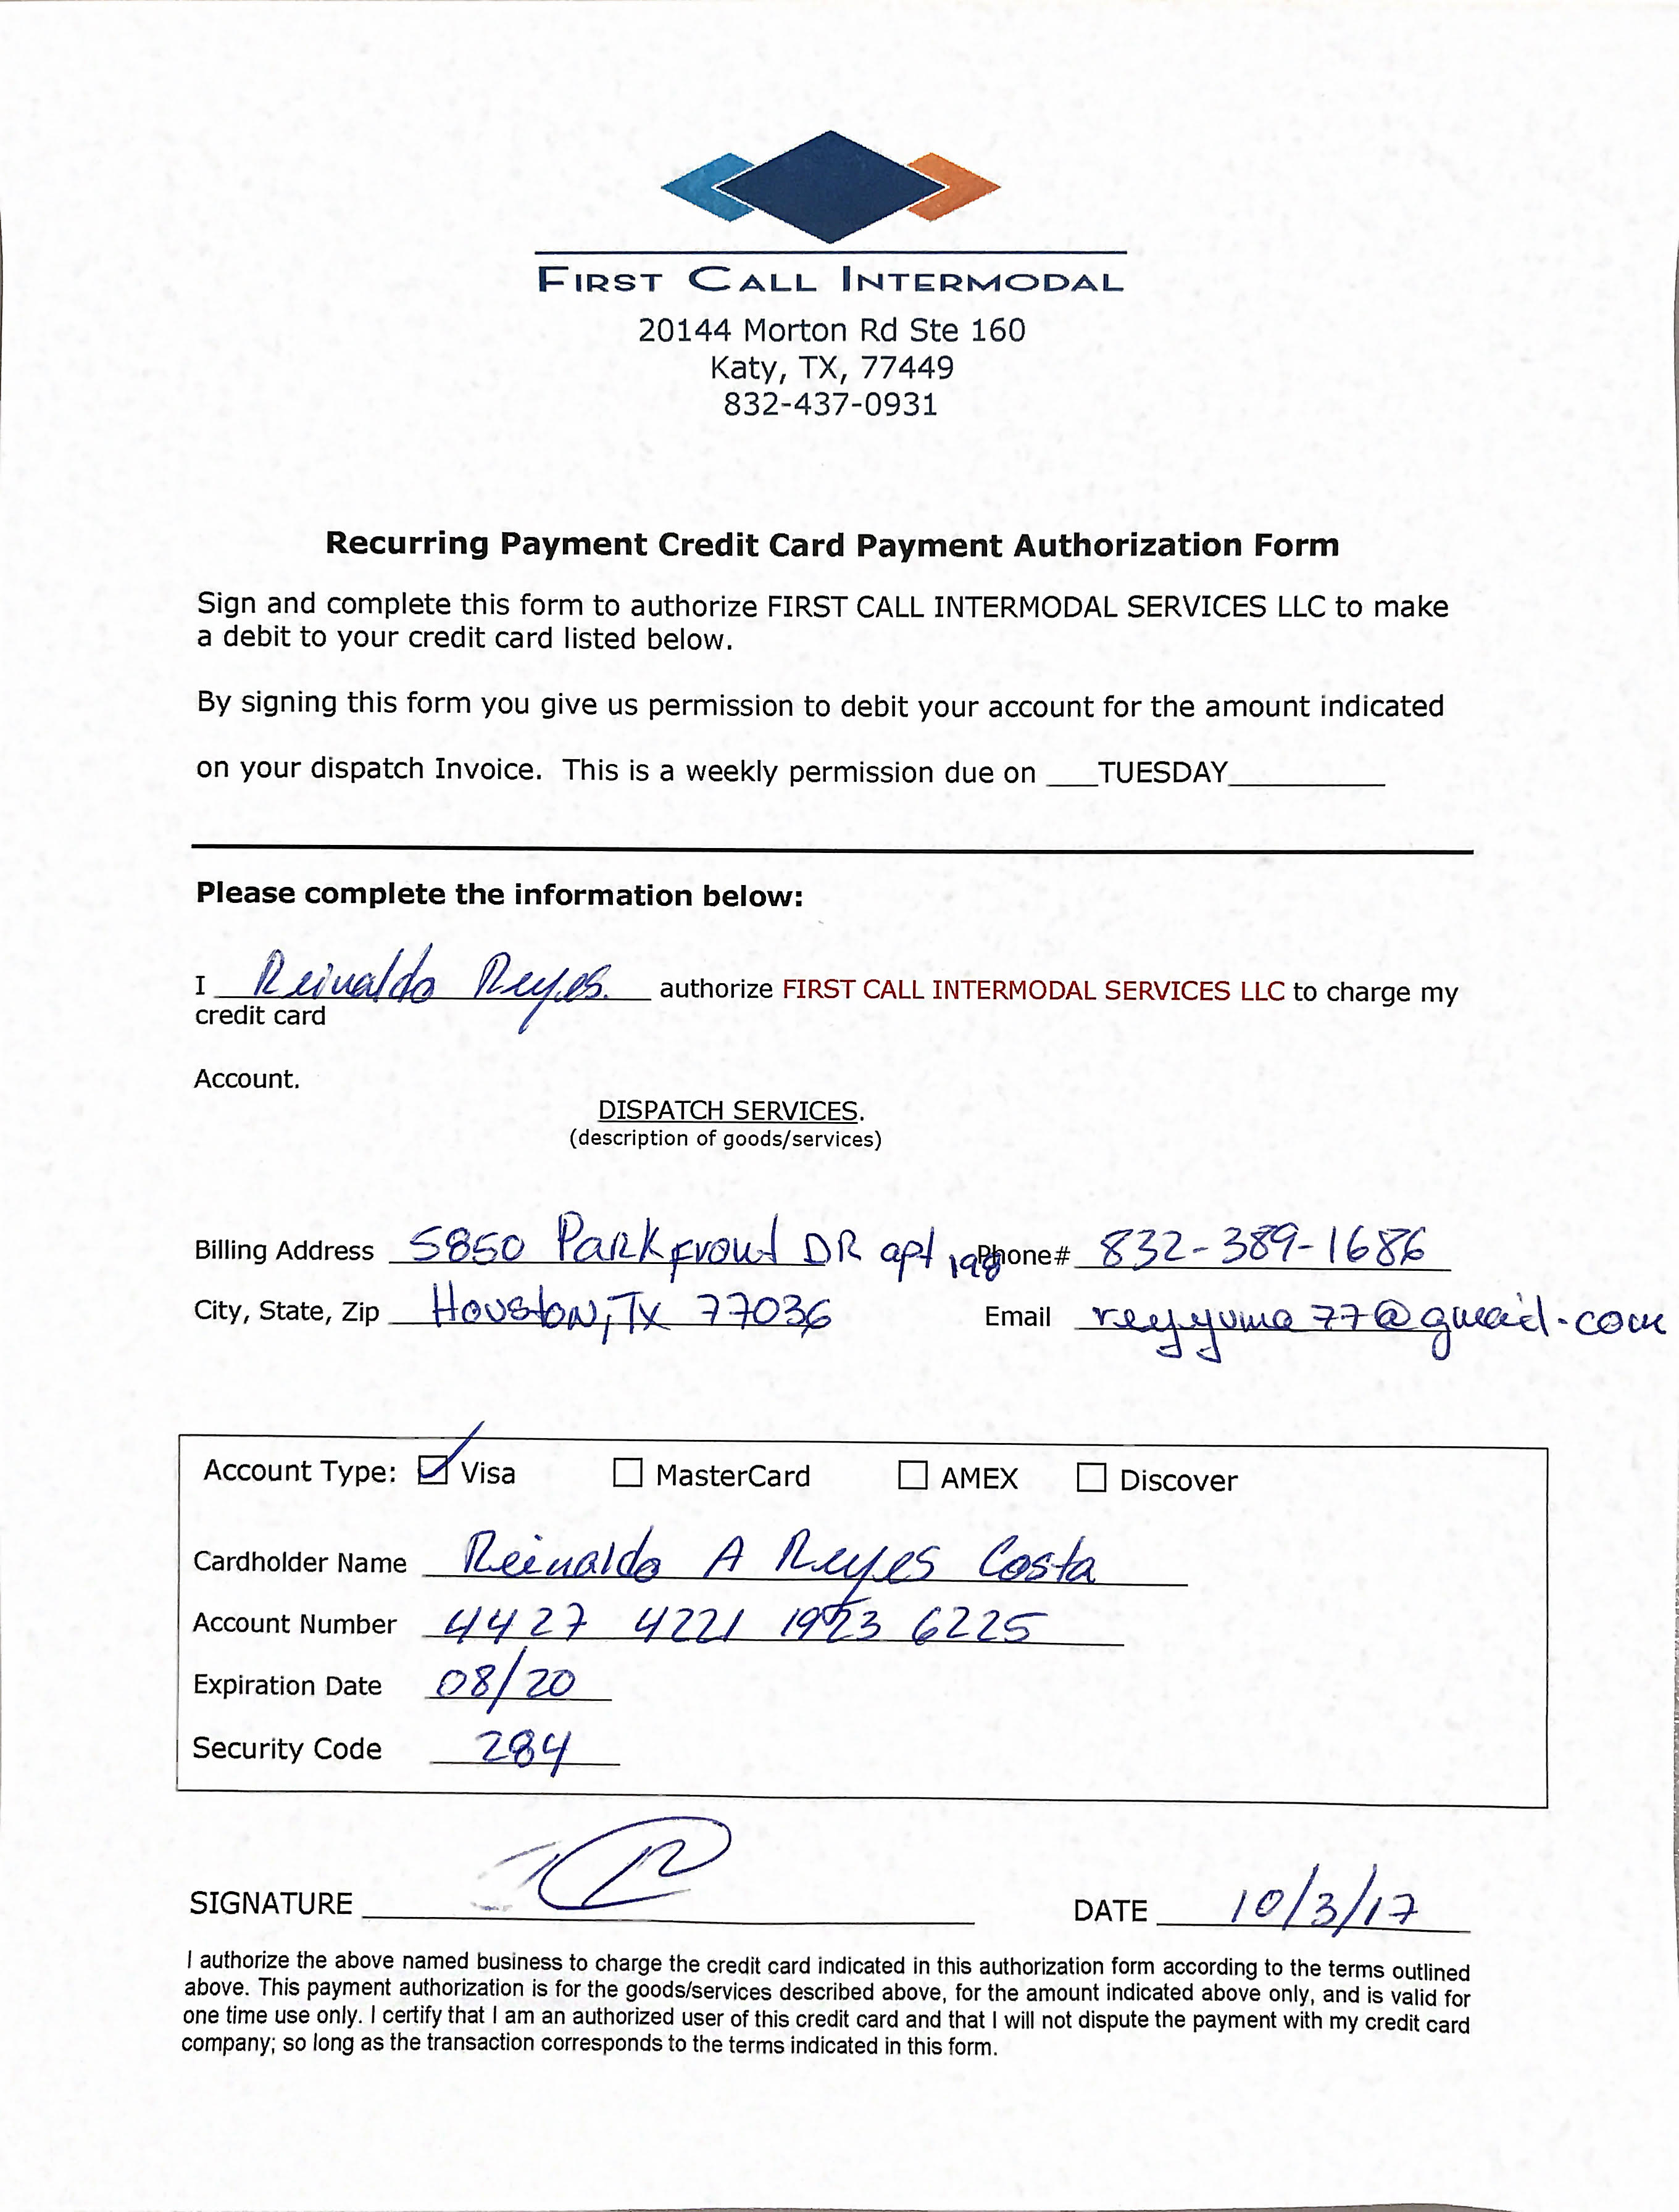 FIRST CALL INTERMODAL
20144 Morton Rd Ste 160
Katy, TX, 77449
832-437-0931
Recurring Payment Credit Card Payment Authorization Form
Sign and complete this form to authorize FIRST CALL INTERMODAL SERVICES LLC to make
a debit to your credit card listed below.
By signing this form you give us permission to debit your account for the amount indicated
on your dispatch Invoice. This is a weekly permission due on TUESDAY
Please complete the information below:
I Reinaldo Reyes. authorize FIRST CALL INTERMODAL SERVICES LLC to charge my
credit card
Account.
DISPATCH SERVICES.
(description of goods/services)
Billing Address 5850 Parkfront DR apt 198 Phone# 832-389-1686
City, State, Zip Houston, TX 77036 Email reyyuma77@gmail.com
Account Type: Visa MasterCard AMEX Discover
Cardholder Name Reinaldo A Reyes Costa
Account Number 4427 4221 6225
Expiration Date 08/20
Security Code 284
SIGNATURE DATE 10/3/17
I authorize the above named business to charge the credit card indicated in this authorization form according to the terms outlined
above. This payment authorization is for the goods/services described above, for the amount indicated above only, and is valid for
one time use only. I certify that I am an authorized user of this credit card and that I will not dispute the payment with my credit card
company; so long as the transaction corresponds to the terms indicated in this form.